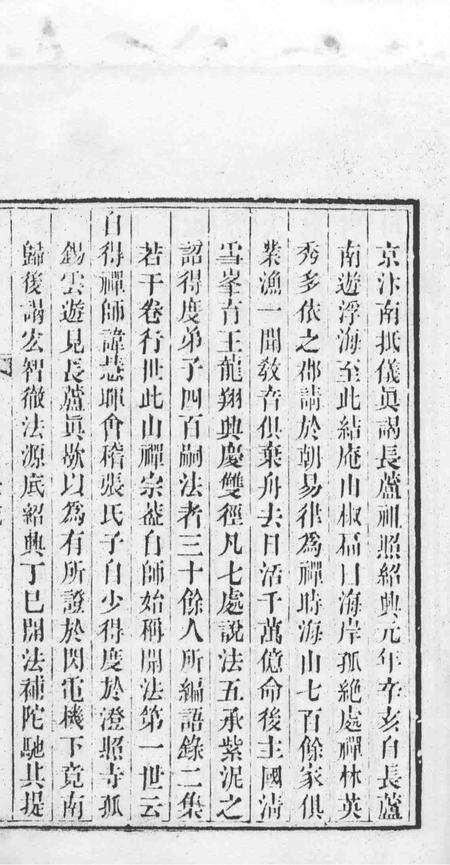 京汴南抵儀眞謁長蘆祖照紹興元年辛亥自長蘆
南遊浮海至此結庵山椒扁曰海岸孤絶處禪林英
秀多依之郡請於朝易律爲禪時海山七百餘家俱
業漁一聞教音俱棄舟去日活千萬億命後主國清
雪峯育王龍翔興慶雙徑凡七處說法五承紫泥之
詔得度弟子四百嗣法者三十餘人所編語錄二集
若干卷行世此山禪宗葢自師始稱開法第一世云
自得禪師諱慧暉會稽張氏子自少得度於澄照寺孤
錫雲遊見長蘆眞歇以為有所證於閃電機下竟南
歸後謁宏智徹法源底紹興丁巳開法補陀馳其提